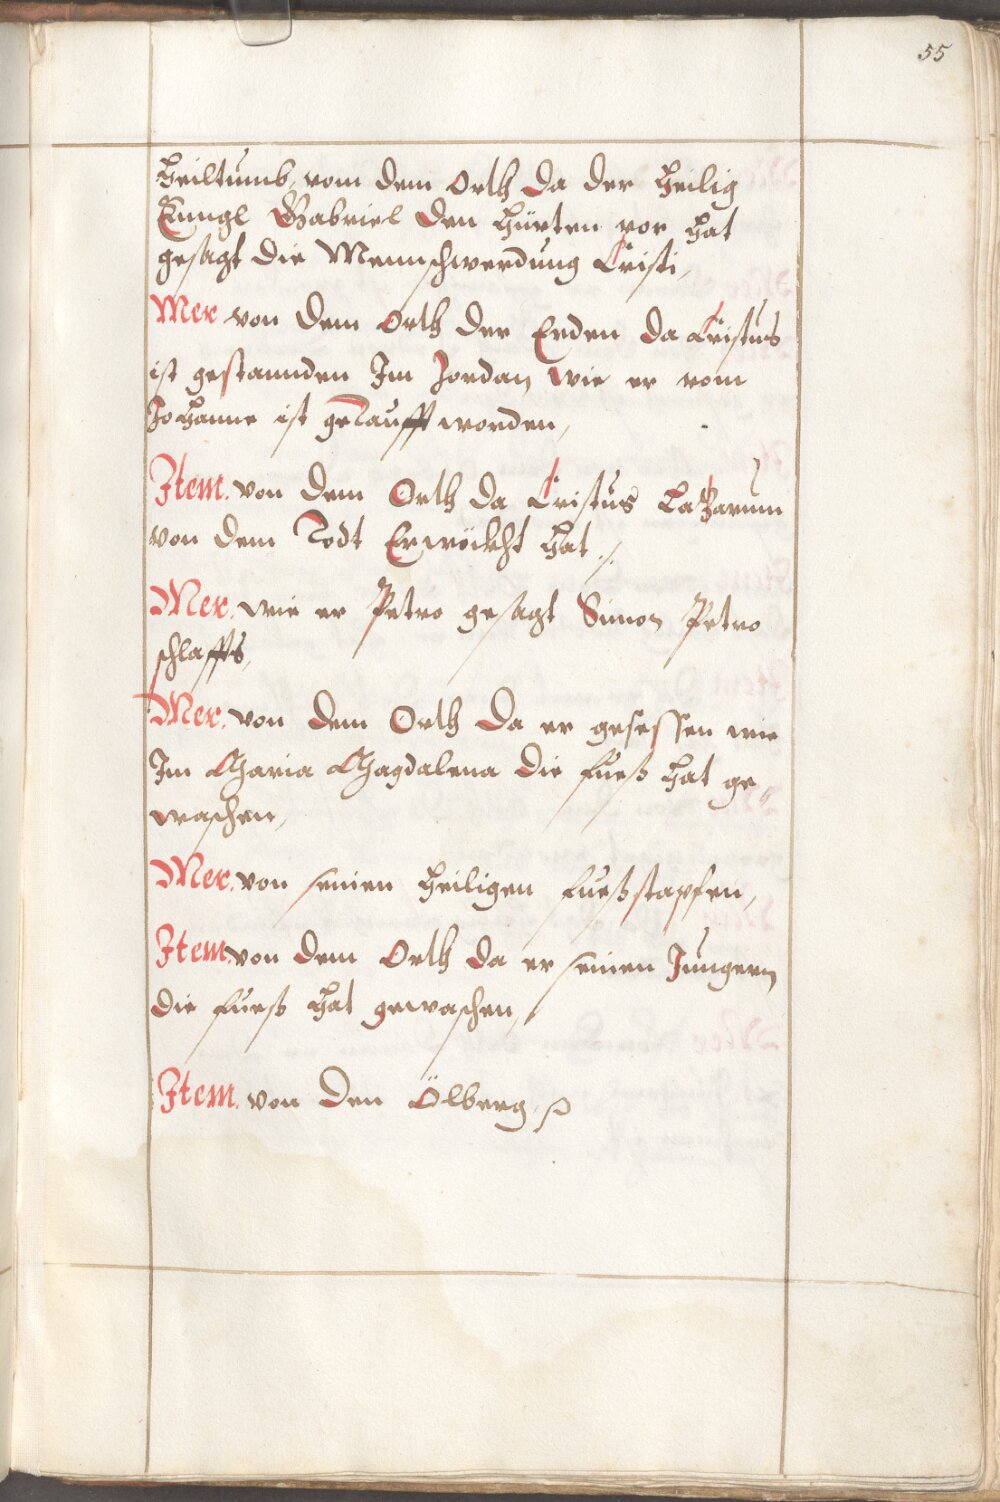 55
Heiltumb, vom dem Orth da der Heilig
Enngl Gabriel den Hürten vor hat
gesagt die Mennschwerdung Cristi,
Mer von dem Orth der Erden da Cristus
ist gestannden Im Jordan wie er vom
Johanne ist getaufft worden,
Item. von dem Orth da Cristus Lazarum
von dem Todt Erwöckht hat ./.
Mer. wie er Petro gesagt Simon Petro
schlaffts,
Mer. von dem Orth da er gesessen wie
Im Maria Magdalena die fueß hat ge„
waschen,
Mer. von seinen heiligen fueßstapfen,
Item von dem Orth da er seinen Jungern
die fueß hat gewaschen,
Item. von den Ölberg.